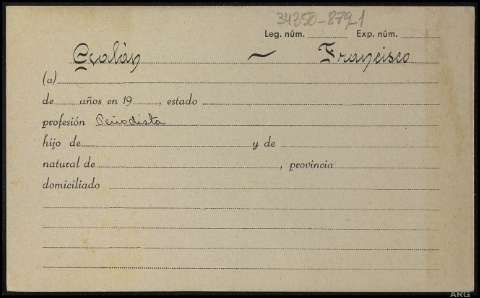 34250-879-1
Leg. núm. Exp. núm.
Galán ~ Francisco
(a)
de años en 19, estado
profesión Periodista
hijo de y de
natural de , provincia
domiciliado
ARG